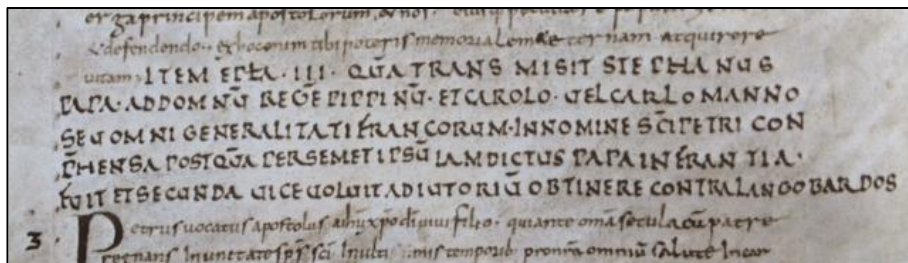 erga principem apostolorum, & nos
& defendendo · ex hoc enim tibi poteris memoriam aeternam atquirere
uitam· ITEM EPLA · III · QUA TRANS MISIT STEPHANUS
PAPA · AD DOMNU REGE PIPPINU · ET CAROLO · UEL CARLOMANNO
SEU OMNI GENERALITATI FRANCORUM · IN NOMINE SCI PETRI CON
PHENSA POSTQUA PER SEMETIPSU IAMDICTUS PAPA IN FRANTIA ·
FUIT ET SECUNDA UICE UOLUIT ADIUTORIU OBTINERE CONTRA LANGOBARDOS
3 Petrus uocatus apostolus a ihu xpo di uiui filio · qui ante oma secula cu patre
regnans In unitate sps sci In ultimis temporib pro nra omniu salute Incar